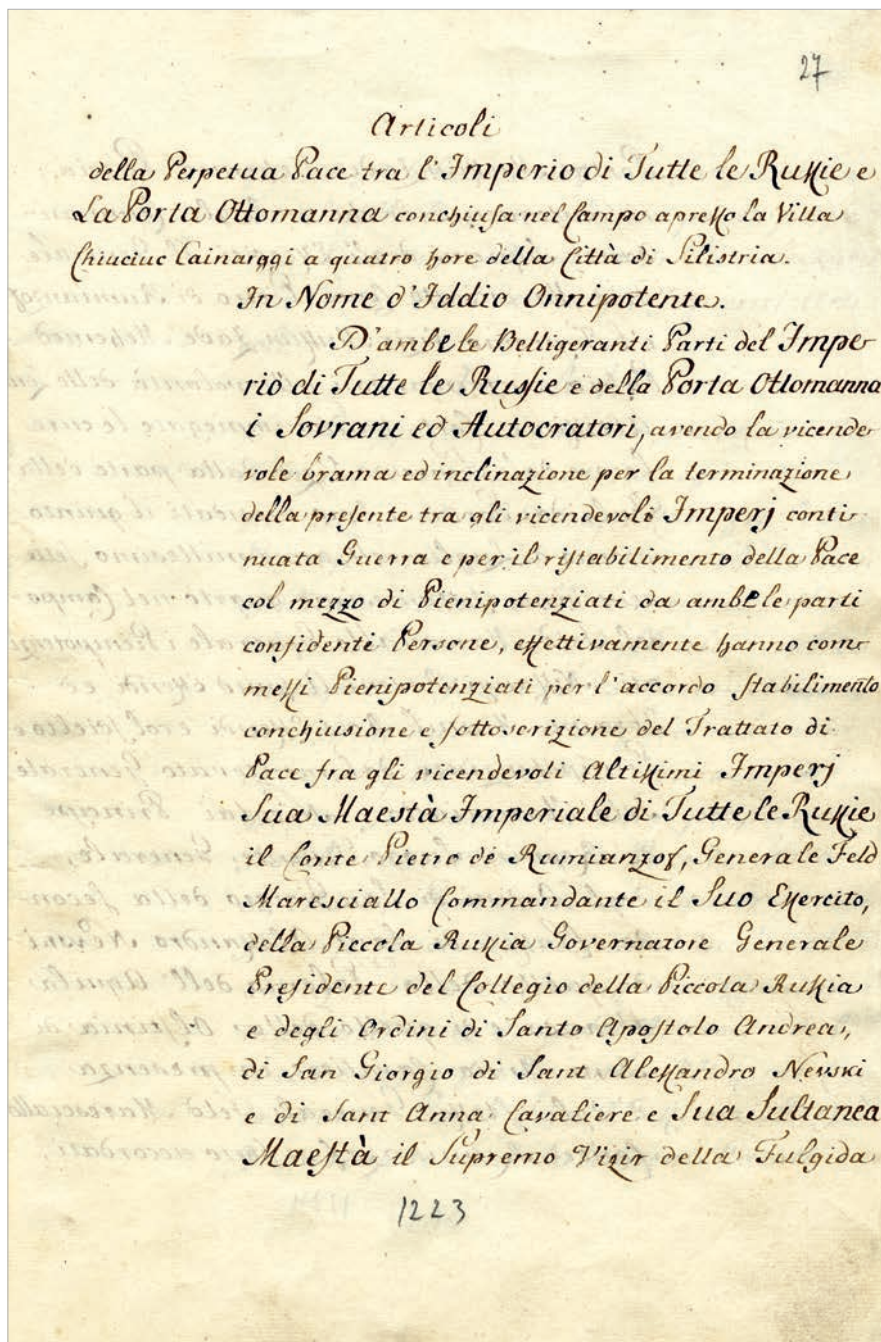 27
Articoli
della Perpetua Pace tra l'Imperio di Tutte le Russie e
La Porta Ottomanna conchiusa nel Campo apresso la Villa
Chiuciuc Cainarggi a quatro hore della Città di Silistria.
In Nome d'Iddio Onnipotente.
D'ambe le Belligeranti Parti del Impe-
rio di Tutte le Russie e della Porta Ottomanna
i Sovrani ed Autocratori, avendo la vicende-
vole brama ed inclinazione per la terminazione
della presente tra gli vicendevoli Imperj conti-
nuata Guerra e per il ristabilimento della Pace
col mezzo di Pienipotenziati da ambe le parti
confidenti Persone, essettivamente hanno com-
messi Pienipotenziati per l'accordo stabilimento
conchiusione e sottoscrizione del Trattato di
Pace fra gli vicendevoli Altissimi Imperj
Sua Maestà Imperiale di Tutte le Russie
il Conte Pietro de Rumianzof, Generale Feld
Maresciallo Commandante il Suo Essercito,
della Piccola Russia Governatore Generale
Presidente del Collegio della Piccola Russia
e degli Ordini di Santo Apostolo Andrea,
di San Giorgio di Sant Alessandro Nevski
e di Sant Anna Cavaliere e Sua Sultanea
Maestà il Supremo Vizir della Fulgida
1223